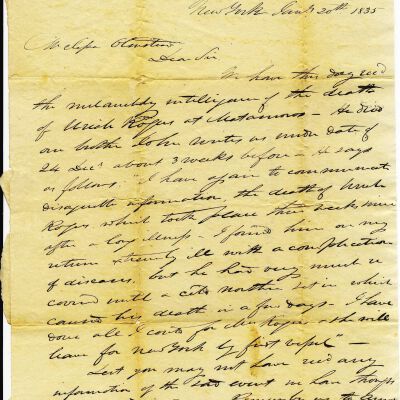 New York Jany 20th 1835
Dear Sir
We have this day recd
the melancholy intelligence of the death
of Uriah Rogers at Matamoros – He died
our brother John writes us under date of
24 Decr about 3 weeks before – He says
as follows. "I have again to communicate
disagreeable information, the death of Uriah
Rogers which took place three weeks since
after a long illness – I found him on my
return extremely ill with a complication
of diseases, but he had very much re
covered until a cold norther set in which
caused his death in a few days – I have
done all I could for Mrs Rogers – she will
leave for New York by first vessel" –
Lest you may not have recd any
information of the sad event we have thought
Remember us to